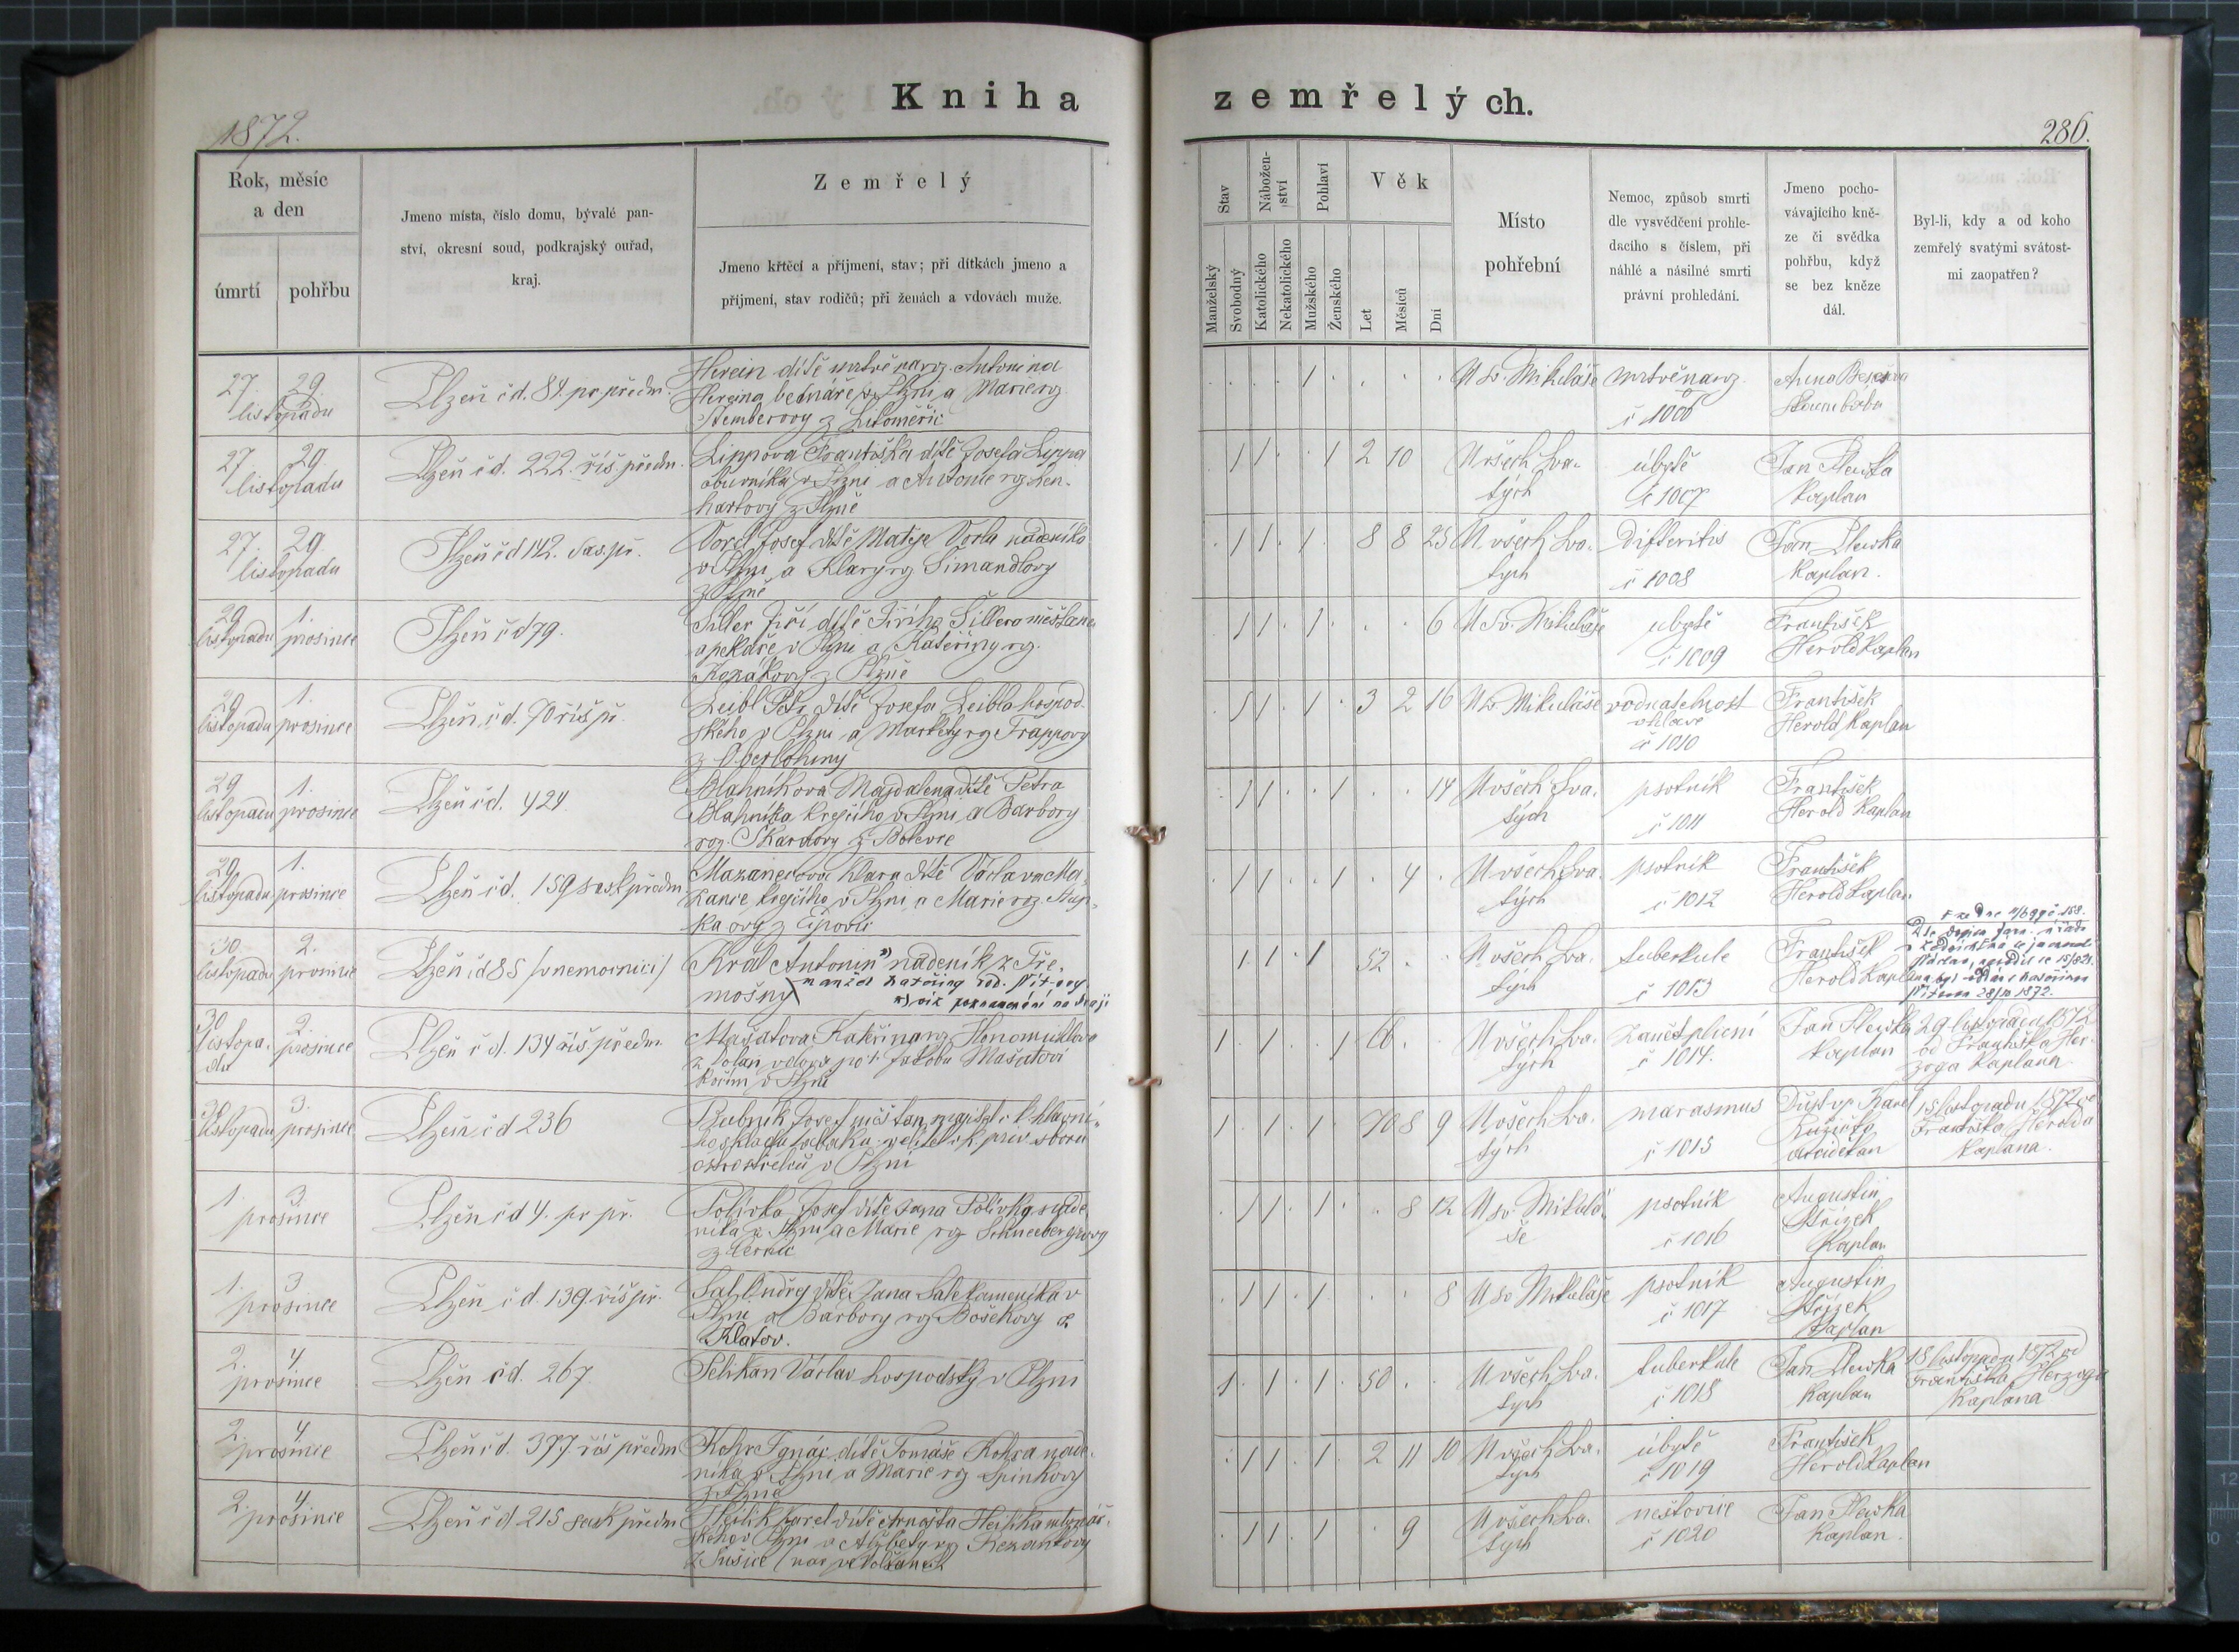 Kniha zemřelých.
1872.
286.
Rok, měsíc
a den
úmrtí
pohřbu
Jmeno místa, číslo domu, bývalé pan-
ství, okresní soud, podkrajský ouřad,
kraj.
Zemřelý
Jmeno křtěcí a příjmení, stav; při dítkách jmeno a
příjmení, stav rodičů; při ženách a vdovách muže.
Stav
Manželský
Svobodný
Nábožen-
ství
Katolického
Nekatolického
Pohlaví
Mužského
Ženského
Věk
Let
Měsíců
Dní
Místo
pohřební
Nemoc, způsob smrti
dle vysvědčení prohle-
dacího s číslem, při
náhlé a násilné smrti
právní prohledání.
Jmeno pocho-
vávajícího kně-
ze či svědka
pohřbu, když
se bez kněze
dál.
Byl-li, kdy a od koho
zemřelý svatými svátost-
mi zaopatřen?
27. 29.
listopadu
Plzeň čd. 84. pr. předm.
Herein dítě mrtvě naroz. Antonína
Hereina bednáře v Plzni a Marie roz.
z Litoměřic
1
U sv. Mikuláše
mrtvě naroz.
č 1006
Anna
27. 29.
listopadu
Plzeň čd. 222. říš. předm.
Lippova Františka dítě Josefa Lippa
obuvníka v Plzni a Antonie roz. Len-
hartovy z Plzně
1 1 1 2 10
U všech Sva-
tých
úbytě
č 1007
Jan Slewka
Kaplan
27. 29.
listopadu
Plzeň čd 142. sas. př.
Vorel Josef dítě Matěje Vorla nádeníka
v Plzni a Klary rz Šimandlovy
z Plzně
1 1 1 8 8 25
U všech Sva-
tých
Difteritis
č 1008
Jan Slewka
Kaplan.
29 1.
listopadu prosince
Plzeň čd 79.
Šiller Jiří dítě Jiřího Šillera měšťana
a pekaře v Plzni a Kateřiny rz.
Kozákovy z Plzně
1 1 1 6
U Sv. Mikuláše
ubytě
č 1009
František
Herold Kaplan
29 1.
listopadu prosince
Plzeň čd. 70 říš př.
Leibl Petr dítě Josefa Leibla hospod-
ského v Plzni a Markety rz Trappovy
z
1 1 1 3 2 16
U sv Mikuláše
vodnatelnost
v hlavě
č 1010
František
Herold Kaplan
29 1.
listopadu prosince
Plzeň čd. 424.
Blahníkova Magdalena dítě Petra
Blahníka krejčího v Plzni a Barbory
roz. Škardovy z Bolevce
1 1 1 14
U všech Sva-
tých
psotník
č 1011
František
Herold Kaplan
29. 1.
listopadu prosince
Plzeň čd. 159 sask předm.
Mazancova Klara dítě Václava Ma-
zance krejčího v Plzni a Marie rz.
z Ejpovic
1 1 1 4
U všech Sva-
tých
psotník
č 1012
František
Herold Kaplan
30 2.
listopadu prosince
Plzeň čd 85 /v nemocnici/
Král Antonin x) nádeník z Tře-
mošny
manžel Kateřiny rod.
x) viz poznamenání na kraji
1 1 1 52
U všech Sva-
tých
tuberkule
č 1013
František
Herold Kaplan
30 2.
listopa- prosince
du
Plzeň č d. 134 říš předm
Mašatova Kateřina rz.
z Dolan vdova po † Jakobu Mašatovi
v Plzni
1 1 1 66.
U všech Sva-
tých
zánět plicní
č 1014.
Jan Slewka
Kaplan
29 listopadu 1872
od Františka Her-
zoga Kaplana
30 3.
listopadu prosince
Plzeň č d 236
Bubník Josef měšťan, majitel c k hlavní-
ho skladu tabaku, velitel c k priv sboru
ostrostřelců v Plzni
1 1 1 70 8 9
U všech Sva-
tých
marasmus
č 1015
Karel
Růžička
arciděkan
15 listopadu 1872 od
Františka Herolda
Kaplana.
1. 3
prosince
Plzeň č d 4. pr př.
Polívka Josef dítě Jana Polívky náde-
níka z Plzni a Marie rz
z Černic
1 1 1 8 12
U sv. Mikulá-
še
psotník
č 1016
Augustin
Střízek
Kaplan
1. 3
prosince
Plzeň č d. 139. říš př.
Ondřej dítě Jana kameníka v
Plzni a Barbory rz Boškovy z
Klatov.
1 1 1 8
U Sv Mikuláše
psotník
č 1017
Augustin
Střízek
Kaplan
2. 4
prosince
Plzeň čd. 267
Pelikan Václav hospodský v Plzni
1 1 1 50
U všech Sva-
tých
tuberkule
č 1018
Jan Slewka
Kaplan
18 listopadu 1872 od
Františka Herzoga
Kaplana
2. 4
prosince
Plzeň čd. 377. říš předm
Kohr Ignác, dítě Tomáše Kohra náde-
níka v Plzni a Marie rz Špinkovy
z Plzně
1 1 1 2 11 10
U všech Sva-
tých
úbytě
č 1019
František
Herold Kaplan
2. 4
prosince
Plzeň č d 215 sask předm
Karel dítě Arnošta
v Plzni a Alžbety rz
z Sušice
1 1 1 9
U všech Sva-
tých
neštovice
č 1020
Jan Slewka
Kaplan.